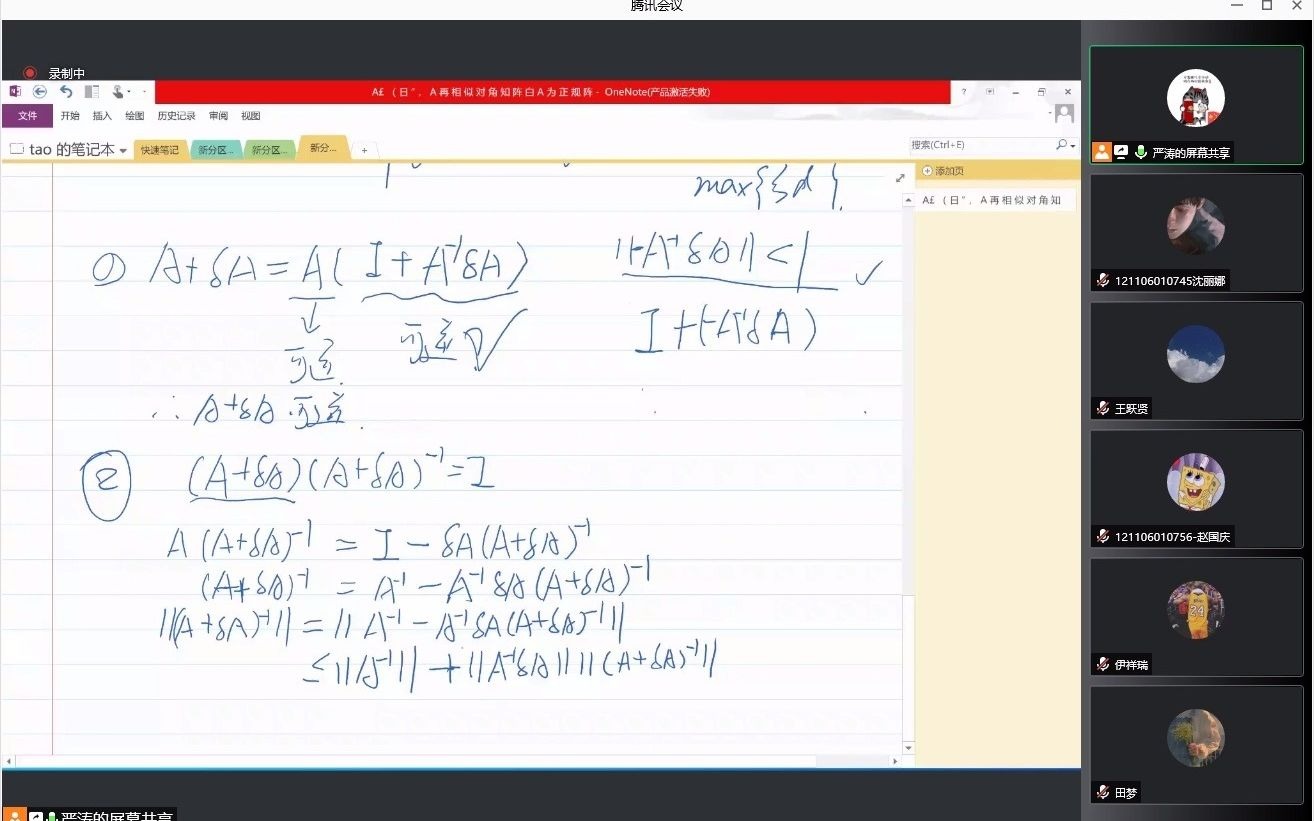 腾讯会议
录制中
A£（日“，A再相似对角知阵白A为正规阵 - OneNote(产品激活失败)
文件 开始 插入 绘图 历史记录 审阅 视图
tao 的笔记本 快速笔记 新分区... 新分区... 新分... +
搜索(Ctrl+E)
添加页
A£（日“，A再相似对角知
max{ }
① A+δA = A( I + A⁻¹δA ) ||-A⁻¹δA|| < 1 ✓
可逆 可逆 ✓ I+(-A⁻¹δA)
∴ A+δA 可逆.
② (A+δA)(A+δA)⁻¹ = I
A(A+δA)⁻¹ = I - δA(A+δA)⁻¹
(A+δA)⁻¹ = A⁻¹ - A⁻¹δA(A+δA)⁻¹
||(A+δA)⁻¹|| = ||A⁻¹ - A⁻¹δA(A+δA)⁻¹||
≤ ||A⁻¹|| + ||A⁻¹δA|| ||(A+δA)⁻¹||
严涛的屏幕共享
121106010745沈丽娜
王跃贤
121106010756-赵国庆
24
伊祥瑞
田梦
严涛的屏幕共享